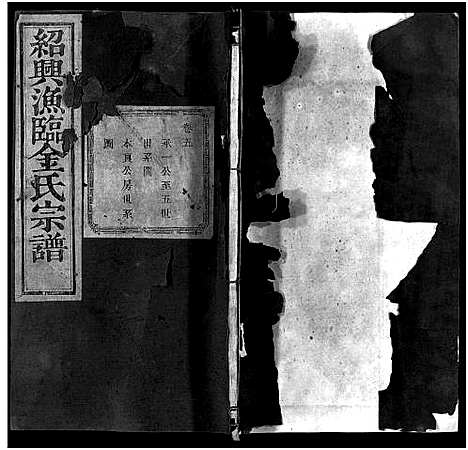 紹興漁臨金氏宗譜
卷五
禾一公至五世
世系圖
本眞公房世系
圖